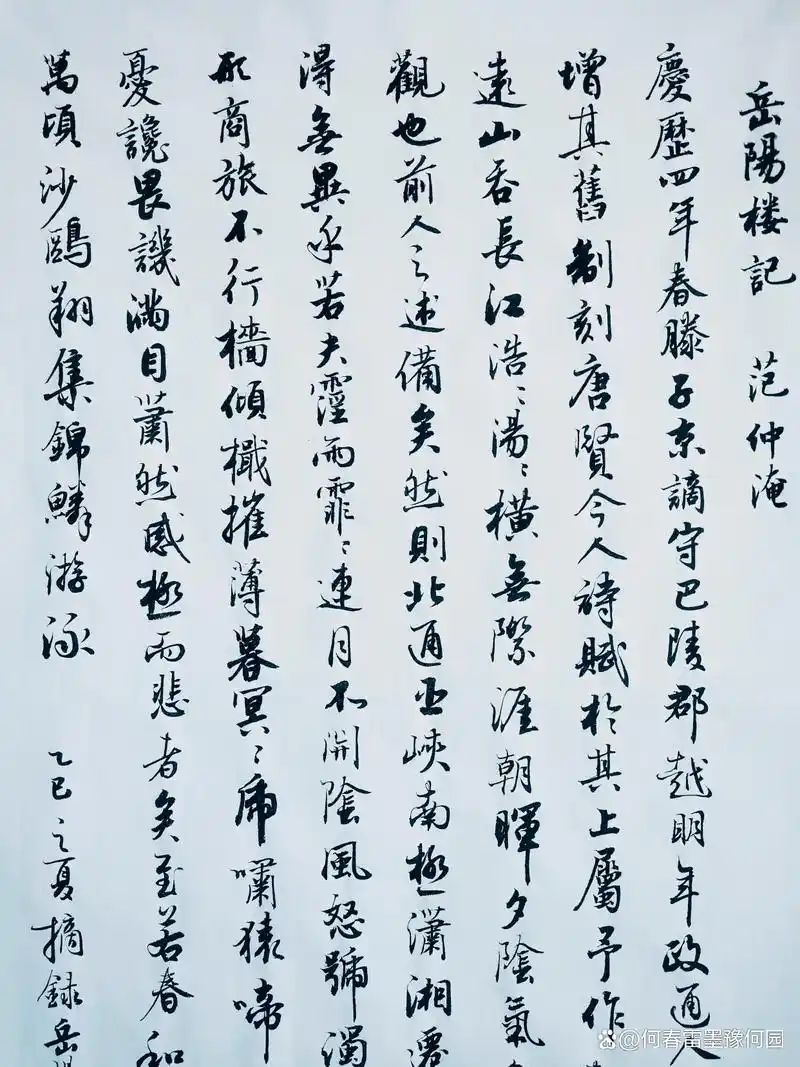 岳陽楼記 范仲淹
慶歷四年春滕子京謫守巴陵郡越明年政通人
增其舊制刻唐賢今人詩賦於其上屬予作
遠山吞長江浩〻湯〻橫無際涯朝暉夕陰氣
觀也前人之述備矣然則北通巫峽南極瀟湘遷
得無異乎若夫霪雨霏〻連月不開陰風怒號濁
形商旅不行檣傾檝摧薄暮冥〻虎嘯猿啼
憂讒畏譏滿目蕭然感極而悲者矣至若春和
萬頃沙鷗翔集錦鱗游泳 乙巳之夏摘録岳
@何春雷墨豫何园